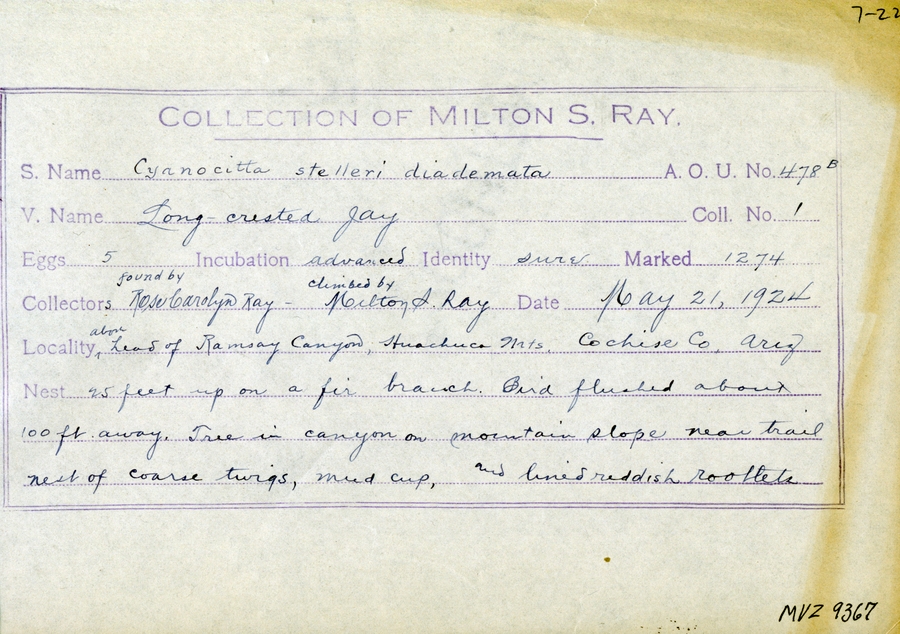 7-22
COLLECTION OF MILTON S. RAY.
S. Name Cyanocitta stelleri diademata A. O. U. No. 478 B
V. Name Long-crested Jay Coll. No. 1
Eggs 5 Incubation advanced Identity sure Marked 1274
found by climbed by
Collectors Rose Carolyn Ray - Milton S. Ray Date May 21, 1924
above
Locality, head of Ramsay Canyon, Huachuca Mts. Cochise Co, Ariz
Nest 25 feet up on a fir branch. Bird flushed about
100 ft. away. Tree in canyon on mountain slope near trail
nest of coarse twigs, mud cup, and lined reddish rootlets
MVZ 9367